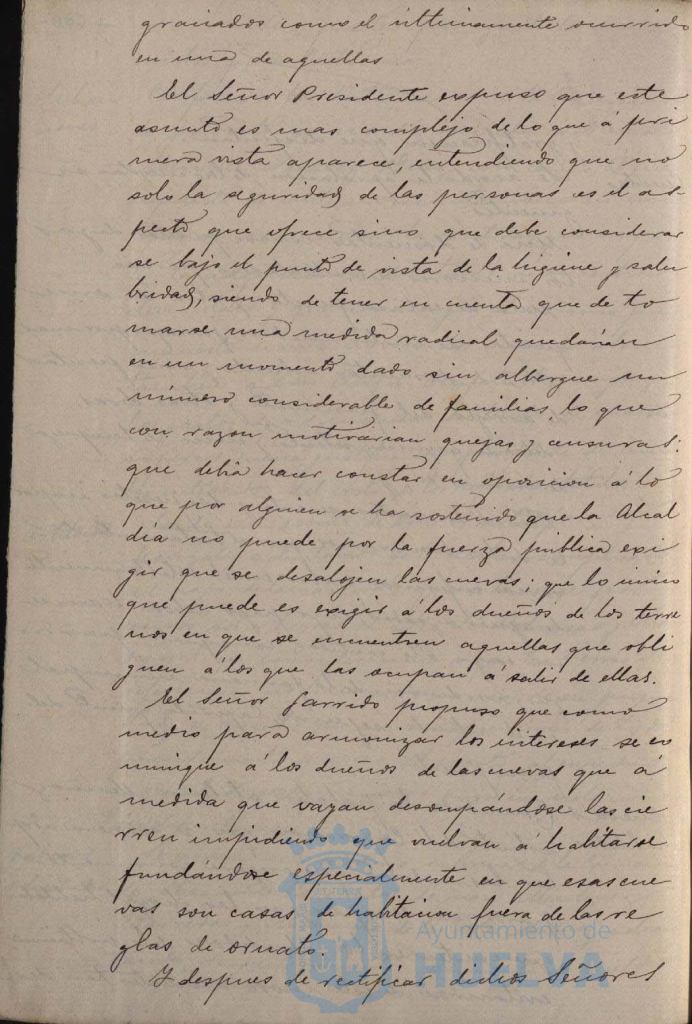 graciados como el ultimamente ocurrido
en una de aquellas
El Señor Presidente expuso que este
asunto es mas complejo de lo que á pri
mera vista aparece, entendiendo que no
solo la seguridad de las personas es el as-
pecto que ofrece sino que debe considerar
se bajo el punto de vista de la higiene y salu
bridad, siendo de tener en cuenta que de to
marse una medida radical quedarian
en un momento dado sin albergue un
número considerable de familias, lo que
con razon motivarian quejas y censuras:
que debia hacer constar en oposicion á lo
que por alguien se ha sostenido que la Alcal
dia no puede por la fuerza pública exi
gir que se desalojen las cuevas; que lo único
que puede es exigir á los dueños de los terre
nos en que se encuentren aquellas que obli
guen á los que las ocupan á salir de ellas.
El Señor Garrido propuso que como
medio para armonizar los intereses se co
munique á los dueños de las cuevas que á
medida que vayan desocupándose las cie
rren impidiendo que vuelvan á habitarse
fundándose especialmente en que esas cue
vas son casas de habitacion fuera de las re
glas de ornato.
Y despues de rectificar dichos Señores
Ayuntamiento de
HUELVA